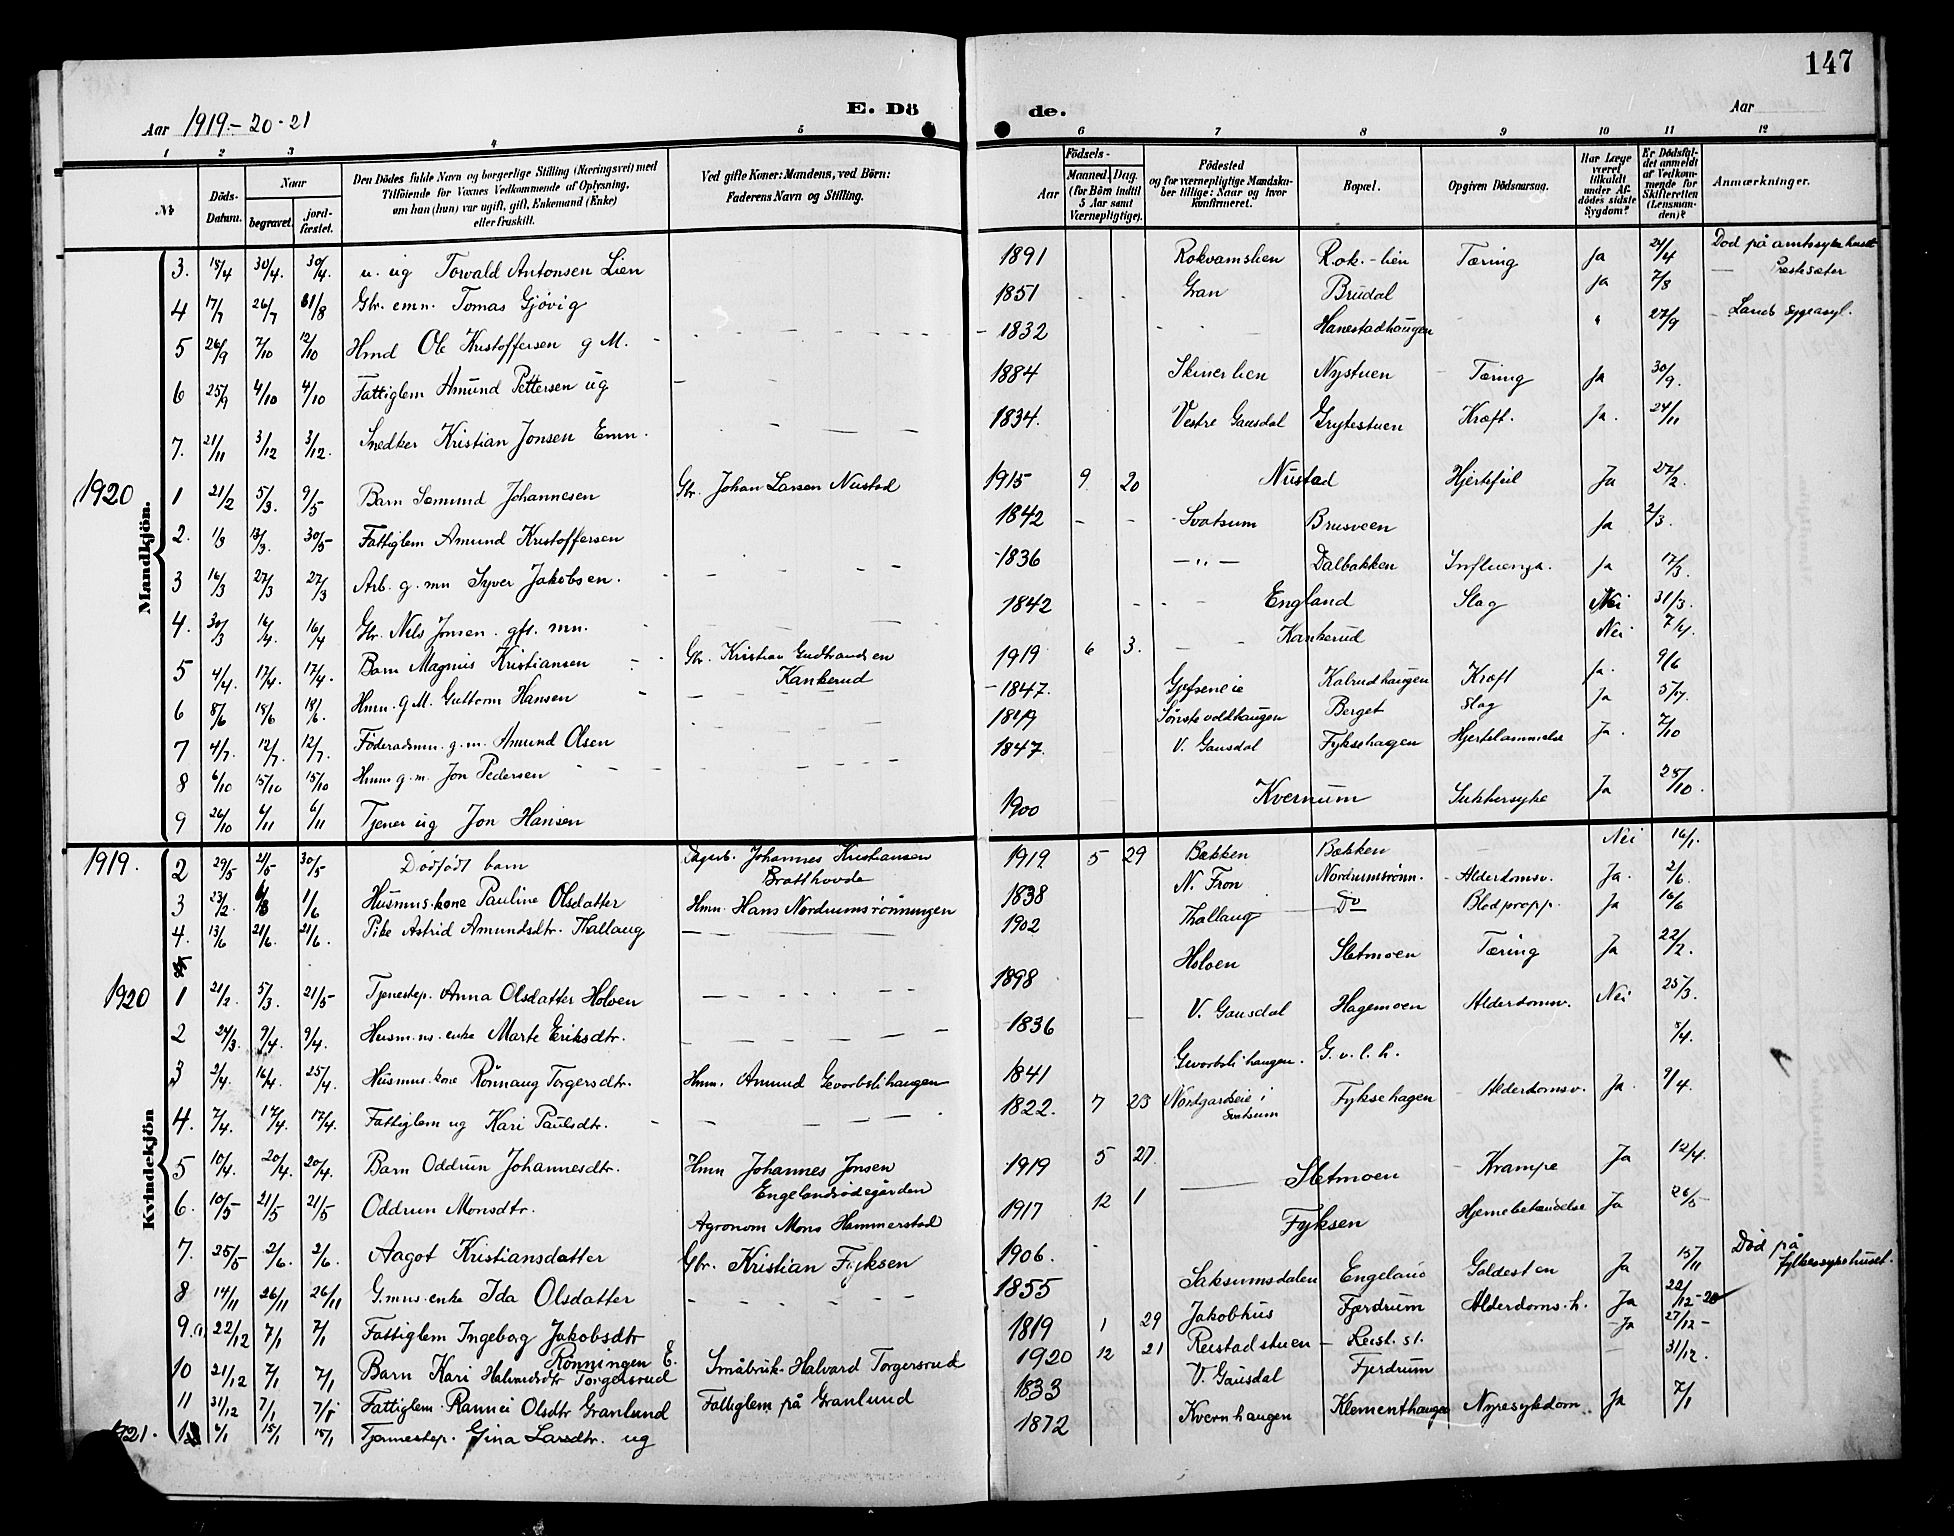 147
Aar 1919.-20-21
E. Dö de.
Aar
1 2 3 4 5 6 7 8 9 10 11 12
№
Döds-Datum.
Naar
begravet.
jord-fæstet.
Den Dödes fulde Navn og borgerlige Stilling (Næringsvei) med
Tilföiende for Voxnes Vedkommende af Oplysning,
om han (hun) var ugift, gift, Enkemand (Enke)
eller fraskilt.
Ved gifte Koner: Mandens, ved Börn:
Faderens Navn og Stilling.
Födsels-
Aar
Maaned. Dag.
(for Börn indtil
5 Aar samt
Værnepligtige).
Födested
og for værnepligtige Mandska-
ber tillige: Naar og hvor
konfirmeret.
Bopæl.
Opgiven Dödsaarsag.
Har Læge
været
tilkaldt
under Af-
dödes sidste
Sygdom?
Er Dödsfal-
det anmeldt
af Vedkom-
mende for
Skifteretten
(Lensman-
den)?
Anmærkninger.
Mandkjön.
3. 15/4 30/4. 30/4. u. ug Torvald Antonsen Lien 1891 Rokvamslien Rok.-lien Tæring Ja 24/4 Död på amtssykehuset
4 17/7 26/7 31/8 Gbr. emn. Tomas Gjövig 1851 Gran Brudal Ja 7/8 — Præstesæter
5 26/9 7/10 12/10 Hmd Ole Kristoffersen g M. 1832 Hanestadhaugen " 27/9 Lands sygeasyl.
6 25/9 4/10 4/10 Fattiglem Amund Pettersen ug 1884 Skinerlien Nystuen Tæring Ja 30/9.
7. 21/11 3/12 3/12. Snedker Kristian Jonsen Emn. 1834. Vestre Gausdal Grytestuen Kræft. Ja. 24/11
1920
1 21/2 5/3. 9/5 Barn Semund Johannesen Gbr. Johan Larsen Nustad 1915 9 20 Nustad Hjertefeil Ja 27/2.
2. 1/3 13/3. 30/5- Fattiglem Amund Kristoffersen 1842 Svatsum Brusveen Ja 2/3.
3 16/3 27/3 27/3 Arb. g. mn Syver Jakobsen. 1836 —„— Dalbakken Influenza. Ja 17/3.
4. 30/3 16/4. 16/4 Gbr. Nils Jonsen. gft. mn. 1842 England Slag Nei 31/3.
5 4/4. 17/4. 17/4. Barn Magnus Kristiansen Gbr. Kristian Gudbrandsen 1919 6 3. Kankerud Nei 7/4.
Kankerud
6 8/6 18/6 18/6. Hmn. g M. Guttorm Hansen 1847. Gjefseneie Kalrudhaugen Kræft Ja. 9/6
7 4/7. 12/7. 12/7. Föderadsmn. g. m. Amund Olsen 1819 Berget Slag Ja 5/7.
8 6/10 15/10 15/10 Hmn g. m. Jon Pedersen 1847. V. Gausdal Fyksehagen Hjertelammelse Ja. 7/10
9 26/10 6/11 6/11 Tjener ug Jon Hansen 1900 Kvernum Sukkersyke Ja 28/10.
Kvindekjön
1919.
2 29/5 2/5 30/5 Dödfödt barn Dagarb. Johannes Kristiansen 1919 5 29 Bækken Bækken Nei 16/1.
Bratthovde
3 23/2. 1/6 Husmns. kone Pauline Olsdatter Hmn. Hans Nordrumsrönningen 1838 N. Fron Nordrumsrönn. Alderdomsv. Ja. 2/6.
4. 13/6 21/6. 21/6. Pike Astrid Amundsdtr. Thallaug 1902 Thallaug Do Blodpropp. Ja 16/6
1920
1 21/2. 5/3. 21/5- Tjenestep. Anna Olsdatter Holoen 1898 Holoen Sletmoen Tæring Ja 22/2.
2 24/3. 9/4. 9/4. Husm.ns. enke Marte Eriksdtr. 1836 V. Gausdal Hagemoen Alderdomsv. Nei 25/3.
3 2/4. 16/4. 25/4. Husmns. kone Rönnaug Torgersdtr. Hmn. Amund Gevorbslihaugen 1841 Gevorbslihaugen. G. v. l. h. 8/4.
4. 7/4. 17/4. 17/4. Fattiglem ug Kari Paulsdtr. 1822. 7 23 Nordgardseie i Fyksehagen Alderdomsv. Ja. 9/4.
Svatsum
5 10/4. 20/4. 20/4. Barn Oddrun Johannesdtr. Hmn Johannes Jonsen 1919 5 27. Sletmoen Krampe Ja 12/4.
Engelandsödegården
6. 10/5 21/5 21/5 Oddrun Monsdtr. Agronom Mons Hammerstad 1917 12 1 Fyksen Hjernebetændelse Ja 26/5-
7. 25/5 2/6. 2/6. Aagot Kristiansdatter Gbr. Kristian Fyksen 1906.
8 14/11 26/11 26/11 G.mns. enke Ida Olsdatter 1855 Saksumsdalen Engeland Galdesten Ja 15/11 Död på fylkessykehuset.
9. 22/12 7/1 7/1 Fattiglem Ingeborg Jakobsdtr 1819 1 29 Jakobhus Fjerdrum Alderdoms. h. Ja 22/12-20
Rönningen E.
10 21/12 7/1 7/1 Barn Kari Halvardsdtr Torgersrud Småbruk. Halvard Torgersrud 1920 12 21 Reistadstuen — Reist. st. Ja 27/12-
11 31/12 7/1 Fattiglem. Rannei Olsdtr Granlund Fattiglem på Granlund 1833 V. Gausdal Fjerdrum 31/12.
1921. 6/1 15/1 15/1 Tjenestep. Gina Larsdtr. ug 1872 Kvernhaugen Klementhaugen Nyresykdom Ja 7/1